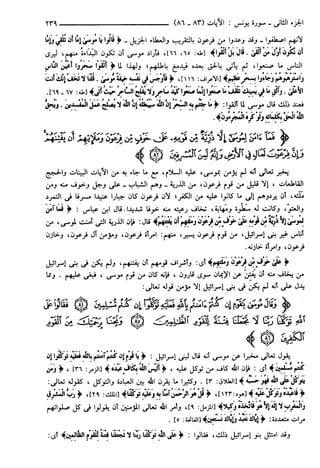 الجزء الثانى - سورة يونس : الآيات (٨٣ - ٨٦) ٢٣٩
لأنهم اصطفوا - وقد وعدوا من فرعون بالتقريب والعطاء الجزيل - ﴿ قَالُوا يَا مُوسَىٰ إِمَّا أَن تُلْقِيَ وَإِمَّا
أَن نَّكُونَ أَوَّلَ مَنْ أَلْقَىٰ . قَالَ بَلْ أَلْقُوا ﴾ (طه: ٦٥، ٦٦)، فأراد موسى أن تكون البَدَاءة منهم، ليرى
الناس ما صنعوا، ثم يأتى بالحق بعده فيدمغ باطلهم، ولهذا لما ﴿ أَلْقَوْا سَحَرُوا أَعْيُنَ النَّاسِ
وَاسْتَرْهَبُوهُمْ وَجَاءُوا بِسِحْرٍ عَظِيمٍ ﴾ (الأعراف: ١١٦)، ﴿ فَأَوْجَسَ فِي نَفْسِهِ خِيفَةً مُّوسَىٰ . قُلْنَا لَا تَخَفْ إِنَّكَ أَنتَ
الْأَعْلَىٰ . وَأَلْقِ مَا فِي يَمِينِكَ تَلْقَفْ مَا صَنَعُوا إِنَّمَا صَنَعُوا كَيْدُ سَاحِرٍ وَلَا يُفْلِحُ السَّاحِرُ حَيْثُ أَتَىٰ ﴾ (طه: ٦٧ - ٦٩).
فعند ذلك قال موسى لما ألقوا: ﴿ مَا جِئْتُم بِهِ السِّحْرُ إِنَّ اللَّهَ سَيُبْطِلُهُ إِنَّ اللَّهَ لَا يُصْلِحُ عَمَلَ الْمُفْسِدِينَ . وَيُحِقُّ
اللَّهُ الْحَقَّ بِكَلِمَاتِهِ وَلَوْ كَرِهَ الْمُجْرِمُونَ ﴾.
﴿ فَمَا آمَنَ لِمُوسَىٰ إِلَّا ذُرِّيَّةٌ مِّن قَوْمِهِ عَلَىٰ خَوْفٍ مِّن فِرْعَوْنَ وَمَلَئِهِمْ أَن يَفْتِنَهُمْ
وَإِنَّ فِرْعَوْنَ لَعَالٍ فِي الْأَرْضِ وَإِنَّهُ لَمِنَ الْمُسْرِفِينَ ﴾
يخبر تعالى أنه لم يؤمن بموسى، عليه السلام، مع ما جاء به من الآيات البينات والحجج
القاطعات ، إلا قليل من قوم فرعون، من الذرية - وهم الشباب - على وجل وخوف منه ومن
مَلَئه، أن يردوهم إلى ما كانوا عليه من الكفر؛ لأن فرعون كان جبارا عنيدا مسرفا فى التمرد
والعتو، وكانت له سَطْوة ومَهابة، تخاف رعيته منه خوفا شديدا. قال ابن عباس : ﴿ فَمَا آمَنَ
لِمُوسَىٰ إِلَّا ذُرِّيَّةٌ مِّن قَوْمِهِ عَلَىٰ خَوْفٍ مِّن فِرْعَوْنَ ﴾ قال: فإن الذرية التى آمنت لموسى، من
أناس غير بنى إسرائيل، من قوم فرعون يسير، منهم: امرأة فرعون، ومؤمن آل فرعون، وخازن
فرعون، وامرأة خازنه.
﴿ عَلَىٰ خَوْفٍ مِّن فِرْعَوْنَ وَمَلَئِهِمْ ﴾ أى: وأشراف قومهم أن يفتنهم، ولم يكن فى بنى إسرائيل
من يخاف منه أن يَفتِنَ عن الإيمان سوى قارون ، فإنه كان من قوم موسى ، فبغى عليهم . ومما
يدل على أنه لم يكن فى بنى إسرائيل إلا مؤمن قوله تعالى:
﴿ وَقَالَ مُوسَىٰ يَا قَوْمِ إِن كُنتُمْ آمَنتُم بِاللَّهِ فَعَلَيْهِ تَوَكَّلُوا إِن كُنتُم مُّسْلِمِينَ فَقَالُوا عَلَى
اللَّهِ تَوَكَّلْنَا رَبَّنَا لَا تَجْعَلْنَا فِتْنَةً لِّلْقَوْمِ الظَّالِمِينَ وَنَجِّنَا بِرَحْمَتِكَ مِنَ الْقَوْمِ
الْكَافِرِينَ ﴾
يقول تعالى مخبرا عن موسى أنه قال لبنى إسرائيل : ﴿ يَا قَوْمِ إِن كُنتُمْ آمَنتُم بِاللَّهِ فَعَلَيْهِ تَوَكَّلُوا إِن
كُنتُم مُّسْلِمِينَ ﴾ أى : فإن الله كاف من توكل عليه ، ﴿ أَلَيْسَ اللَّهُ بِكَافٍ عَبْدَهُ ﴾ [الزمر: ٣٦] ، ﴿ وَمَن
يَتَوَكَّلْ عَلَى اللَّهِ فَهُوَ حَسْبُهُ ﴾ [الطلاق: ٣] . وكثيرا ما يقرن الله بين العبادة والتوكل ، كقوله تعالى:
﴿ فَاعْبُدْهُ وَتَوَكَّلْ عَلَيْهِ ﴾ [هود: ١٢٣]، ﴿ قُلْ هُوَ الرَّحْمَنُ آمَنَّا بِهِ وَعَلَيْهِ تَوَكَّلْنَا ﴾ [الملك: ٢٩]، ﴿ رَّبُّ الْمَشْرِقِ
وَالْمَغْرِبِ لَا إِلَٰهَ إِلَّا هُوَ فَاتَّخِذْهُ وَكِيلًا ﴾ [المزمل: ٩]، وأمر الله تعالى المؤمنين أن يقولوا فى كل صلواتهم
مرات متعددة: ﴿ إِيَّاكَ نَعْبُدُ وَإِيَّاكَ نَسْتَعِينُ ﴾ [الفاتحة: ٥] .
وقد امتثل بنو إسرائيل ذلك، فقالوا : ﴿ عَلَى اللَّهِ تَوَكَّلْنَا رَبَّنَا لَا تَجْعَلْنَا فِتْنَةً لِّلْقَوْمِ الظَّالِمِينَ ﴾ أى: